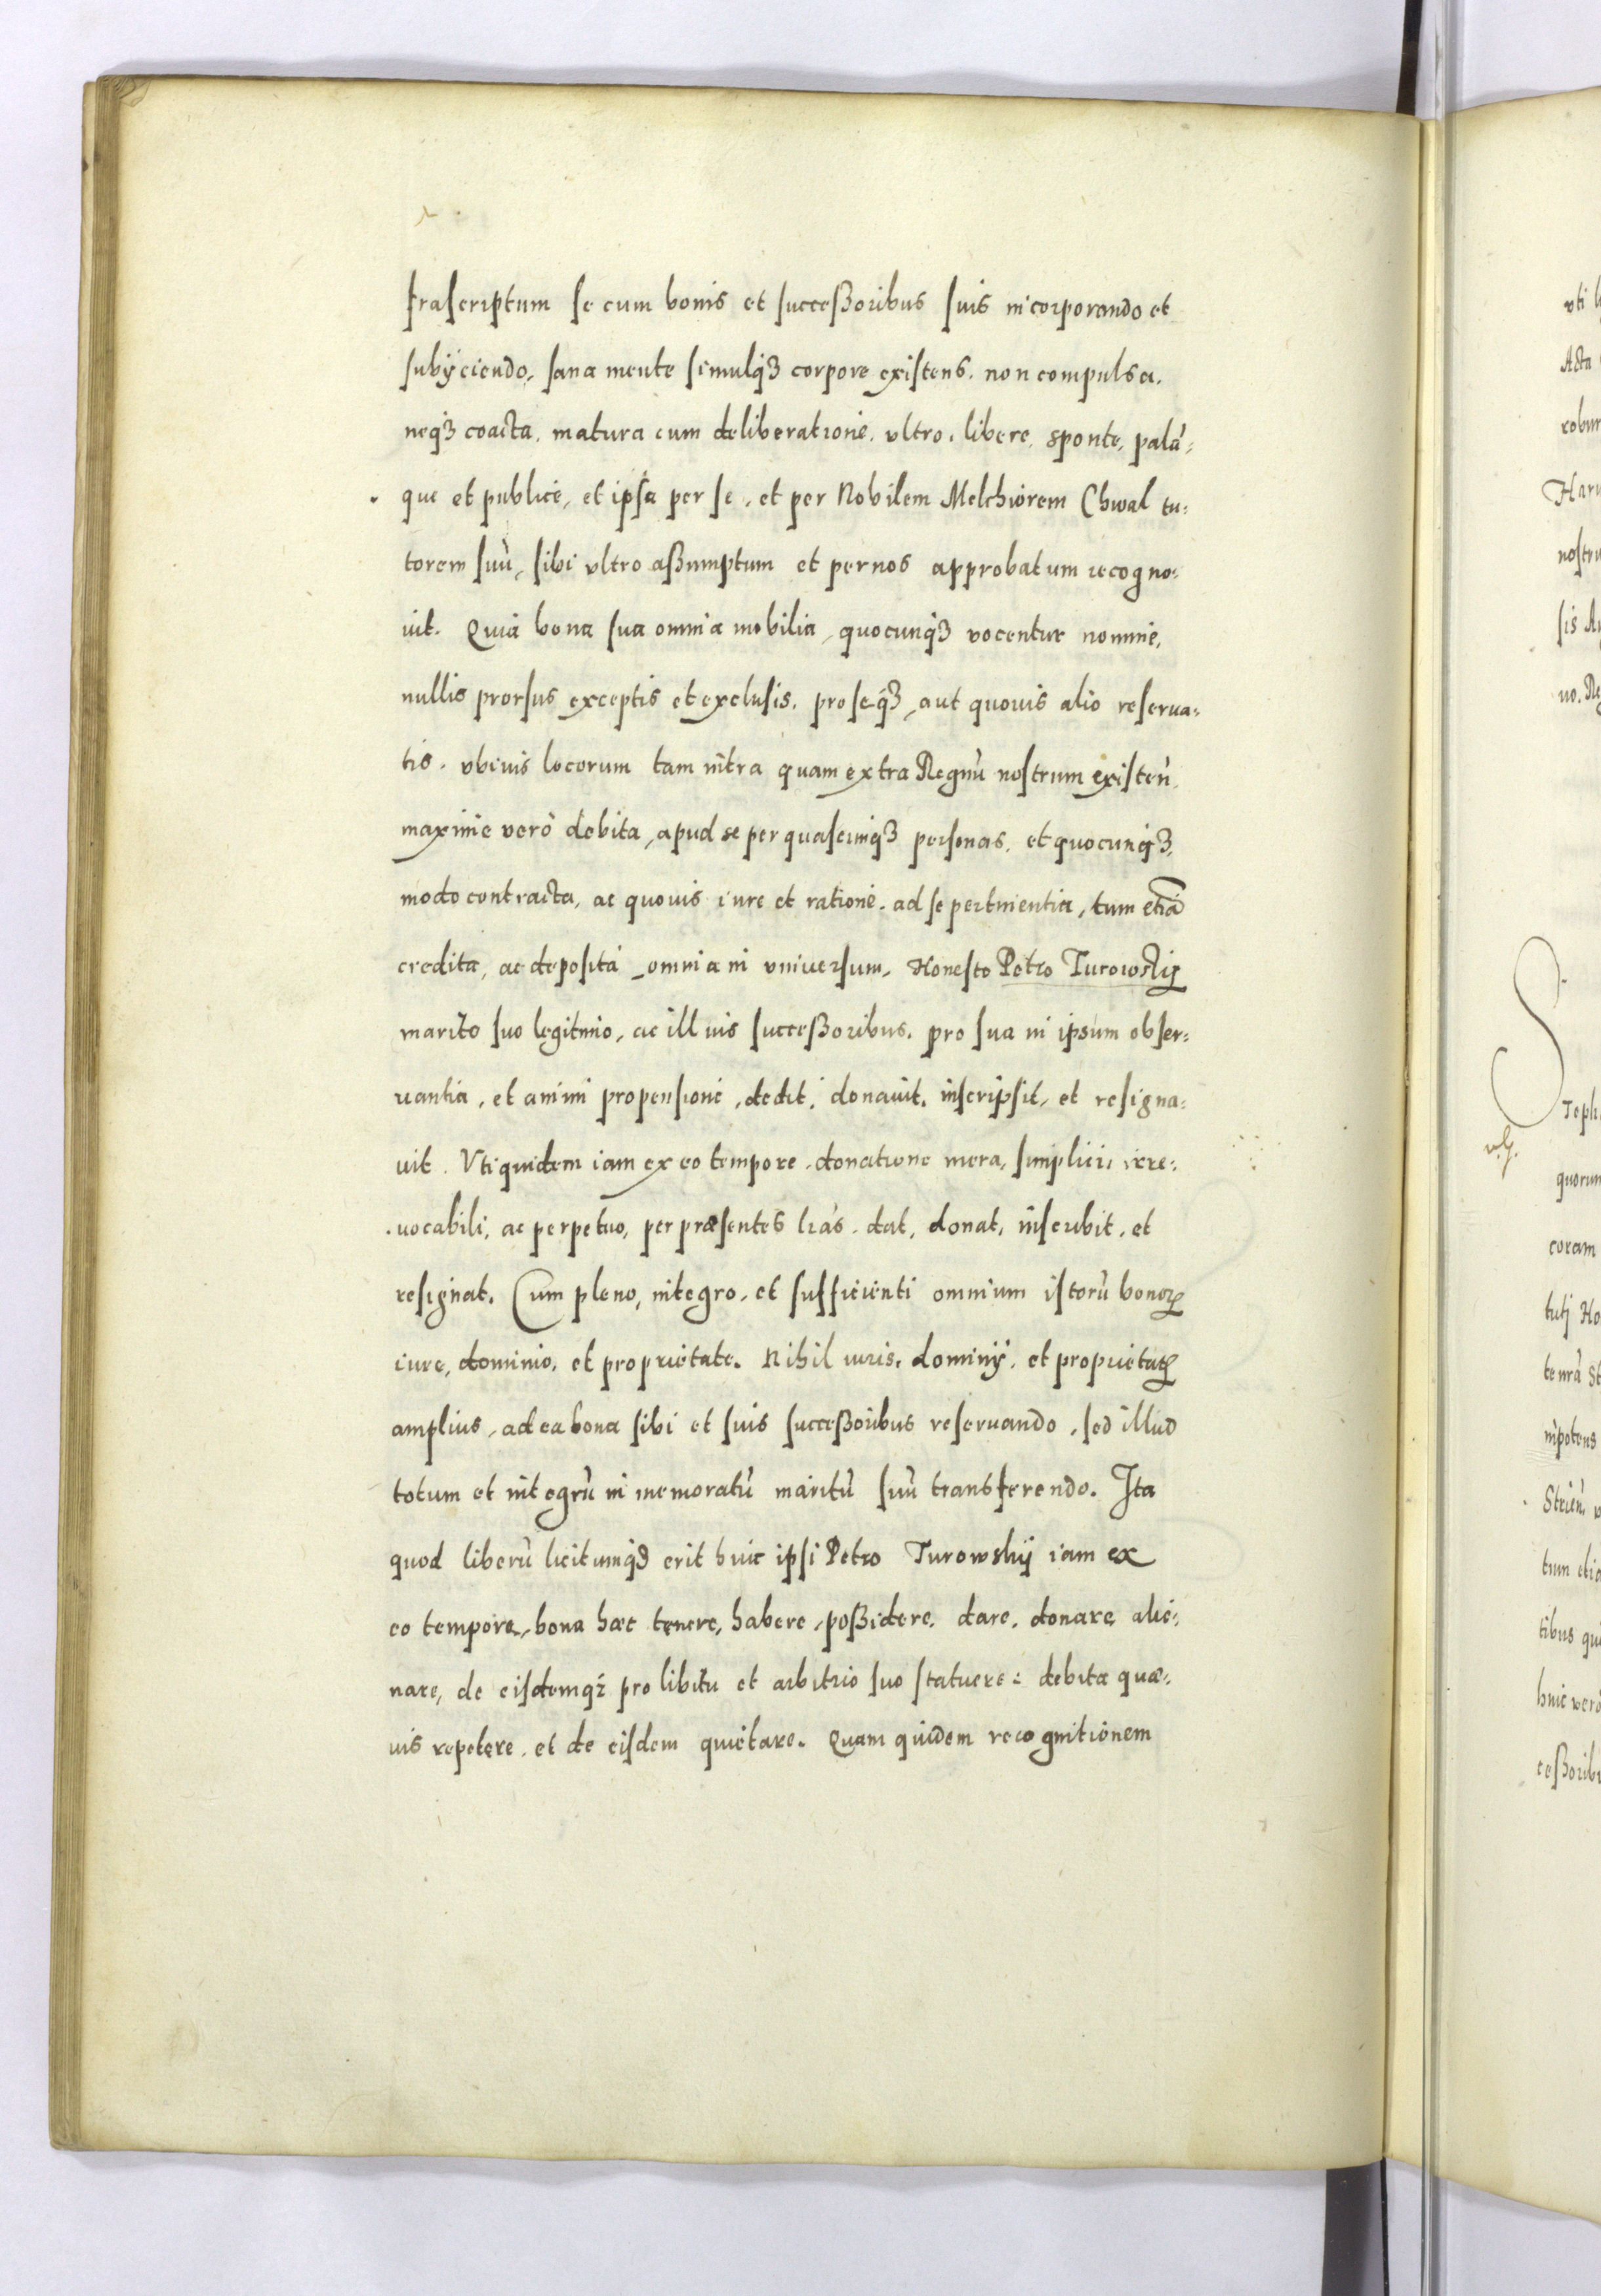 frascriptum se cum bonis et successoribus suis incorporando et
subijciendo, sana mente simulq3 corpore existens, non compulsa,
neq3 coacta, matura cum deliberatione, vltro, libere, sponte, palā=
que et publice, et ipsa per se, et per Nobilem Melchiorem Chwal tu=
torem suū, sibi vltro assumptum et per nos approbatum recogno=
uit. Quia bona sua omnia mobilia, quocunq3 vocentur nomine,
nullis prorsus exceptis et exclusis, pro seq3, aut quouis alio reserua=
tis, vbiuis locorum tam intra quam extra Regnū nostrum existen̄,
maxime verò debita, apud se per quascunq3 personas, et quocunq3,
modo contracta, ac quouis iure et ratione, ad se pertinentia, tum etiā
credita, ac deposita, omnia in vniuersum, Honesto Petro Turowskij
marito suo legitimo, ac illius successoribus, pro sua in ipsum obser=
uantia, et animi propensione, dedit, donauit, inscripsit, et resigna=
uit. Vti quidem iam ex eo tempore, donatione mera, simplici, irre=
uocabili, ac perpetuo, per præsentes lrās, dat, donat, inscribit, et
resignat. Cum pleno, integro, et sufficienti omnium istorū bonoꝝ
iure, dominio, et proprietate. Nihil iuris, dominij, et proprietatꝭ
amplius, ad ea bona sibi et suis successoribus reseruando, sed illud
totum et integrū in memoratū maritū suū transferendo. Ita
quod liberū licitumq3 erit huic ipsi Petro Turowskij iam ex
eo tempore, bona hæc tenere, habere, possidere, dare, donare, alie=
nare, de eisdemq3 pro libitu et arbitrio suo statuere: debita quæ=
uis repetere, et de eisdem quietare. Quam quidem recognitionem
vti
Acta
robur
nostru
sis
no.
Steph
quorum
coram
tutj Ho
impotens
Strien̄
tum etiā
tibus qui
huic verò
cessoribu